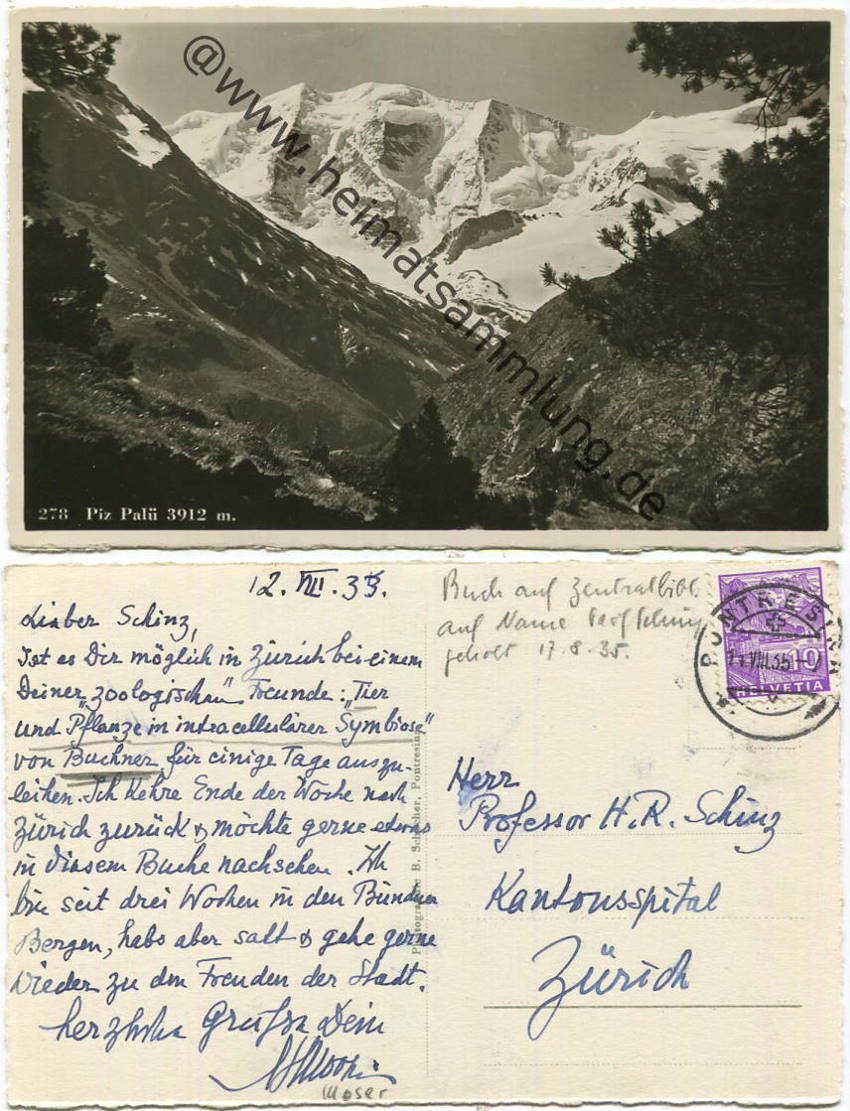 @www.heimatsammlung.de
278 Piz Palü 3912 m.
12. VIII. 35.
Lieber Schinz,
Ist es Dir möglich in Zürich bei einem
Deiner „zoologischen" Freunde: „Tier
und Pflanze in intracellulärer Symbiose"
von Buchner für einige Tage auszu-
leihen. Ich kehre Ende der Woche nach
Zürich zurück & möchte gerne etwas
in diesem Buche nachsehen. Ich
bin seit drei Wochen in den Bündner
Bergen, habs aber satt & gehe gerne
wieder zu den Freuden der Stadt.
herzliche Grüsse Dein
Moser
Buch auf Zentralbibl.
auf Name Prof Schinz
geholt 17.8.35.
PONTRESINA
VIII.35
10
HELVETIA
Photographie B. Schocher, Pontresina
Herr
Professor H. R. Schinz
Kantonsspital
Zürich